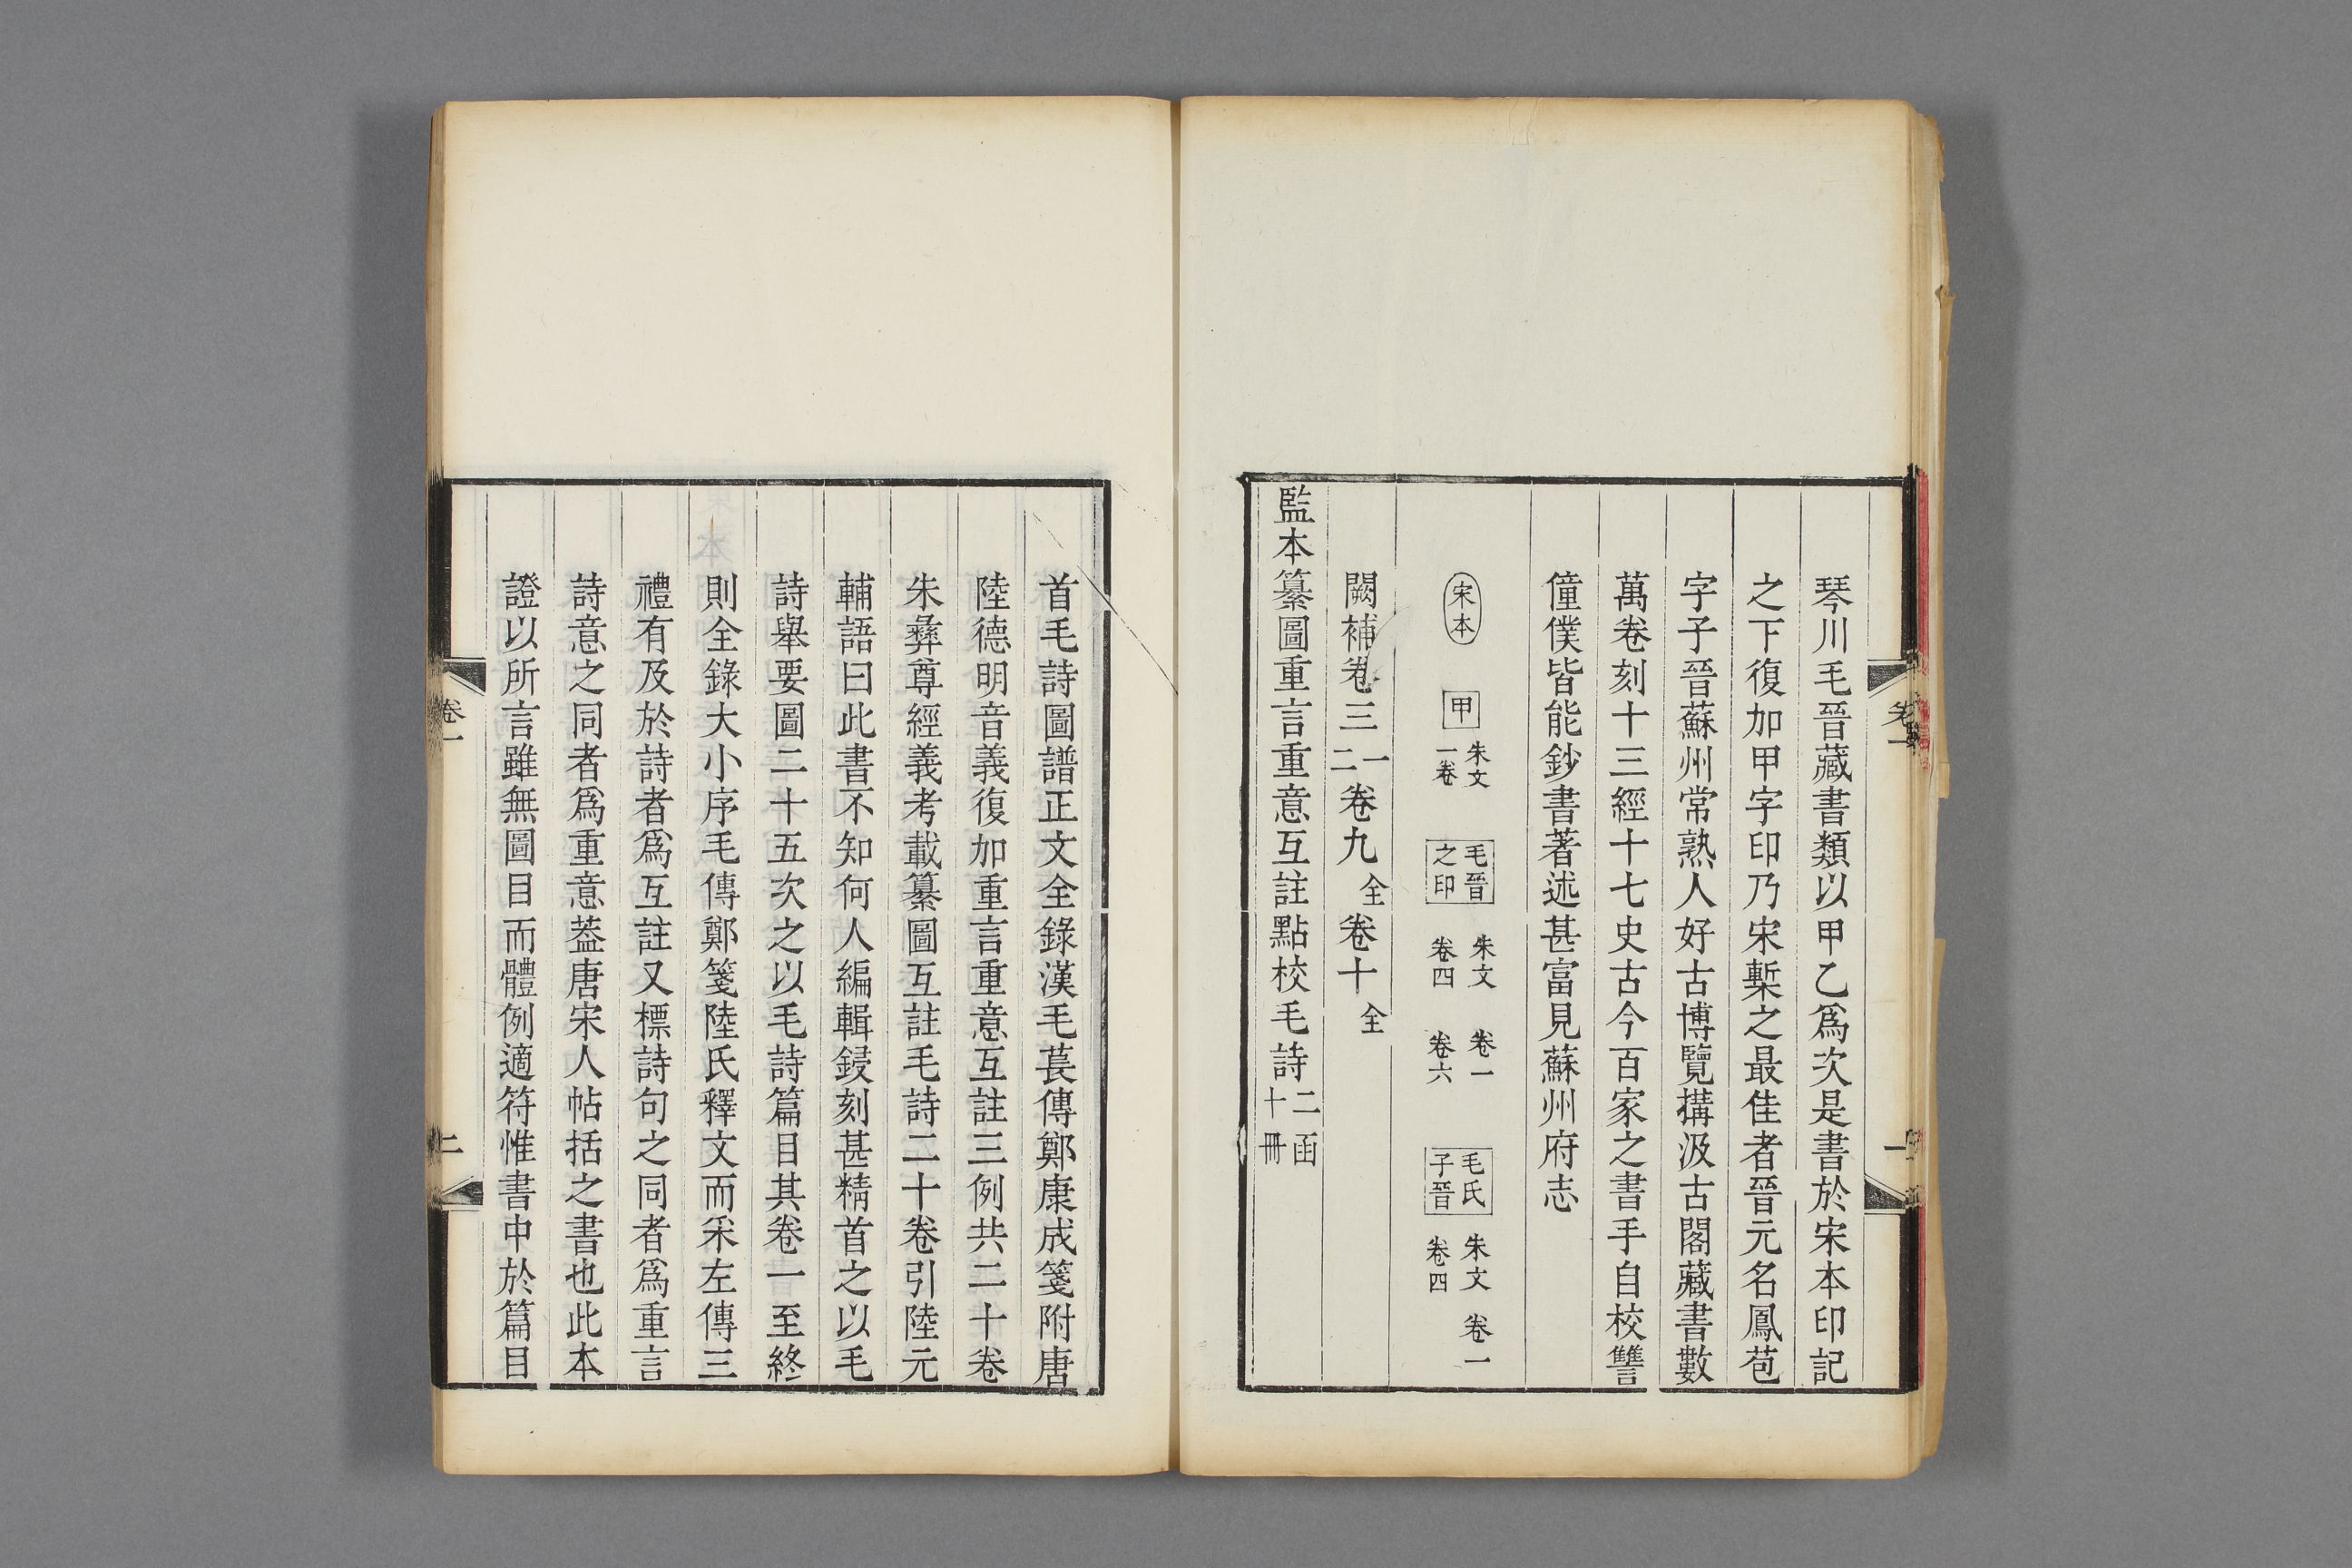 琴川毛晉藏書類以甲乙爲次是書於宋本印記
之下復加甲字印乃宋槧之最佳者晉元名鳳苞
字子晉蘇州常熟人好古博覽搆汲古閣藏書數
萬卷刻十三經十七史古今百家之書手自校讐
僮僕皆能鈔書著述甚富見蘇州府志
宋本 甲 朱文一卷 毛晉之印 朱文卷四 卷一卷六 毛氏子晉 朱文卷四 卷一
闕補卷三一二卷九全卷十全
監本纂圖重言重意互註點校毛詩二函十冊
首毛詩圖譜正文全錄漢毛萇傳鄭康成箋附唐
陸德明音義復加重言重意互註三例共二十卷
朱彝尊經義考載纂圖互註毛詩二十卷引陸元
輔語曰此書不知何人編輯鋟刻甚精首之以毛
詩舉要圖二十五次之以毛詩篇目其卷一至終
則全錄大小序毛傳鄭箋陸氏釋文而采左傳三
禮有及於詩者爲互註又標詩句之同者爲重言
詩意之同者爲重意葢唐宋人帖括之書也此本
證以所言雖無圖目而體例適符惟書中於篇目
卷一
二